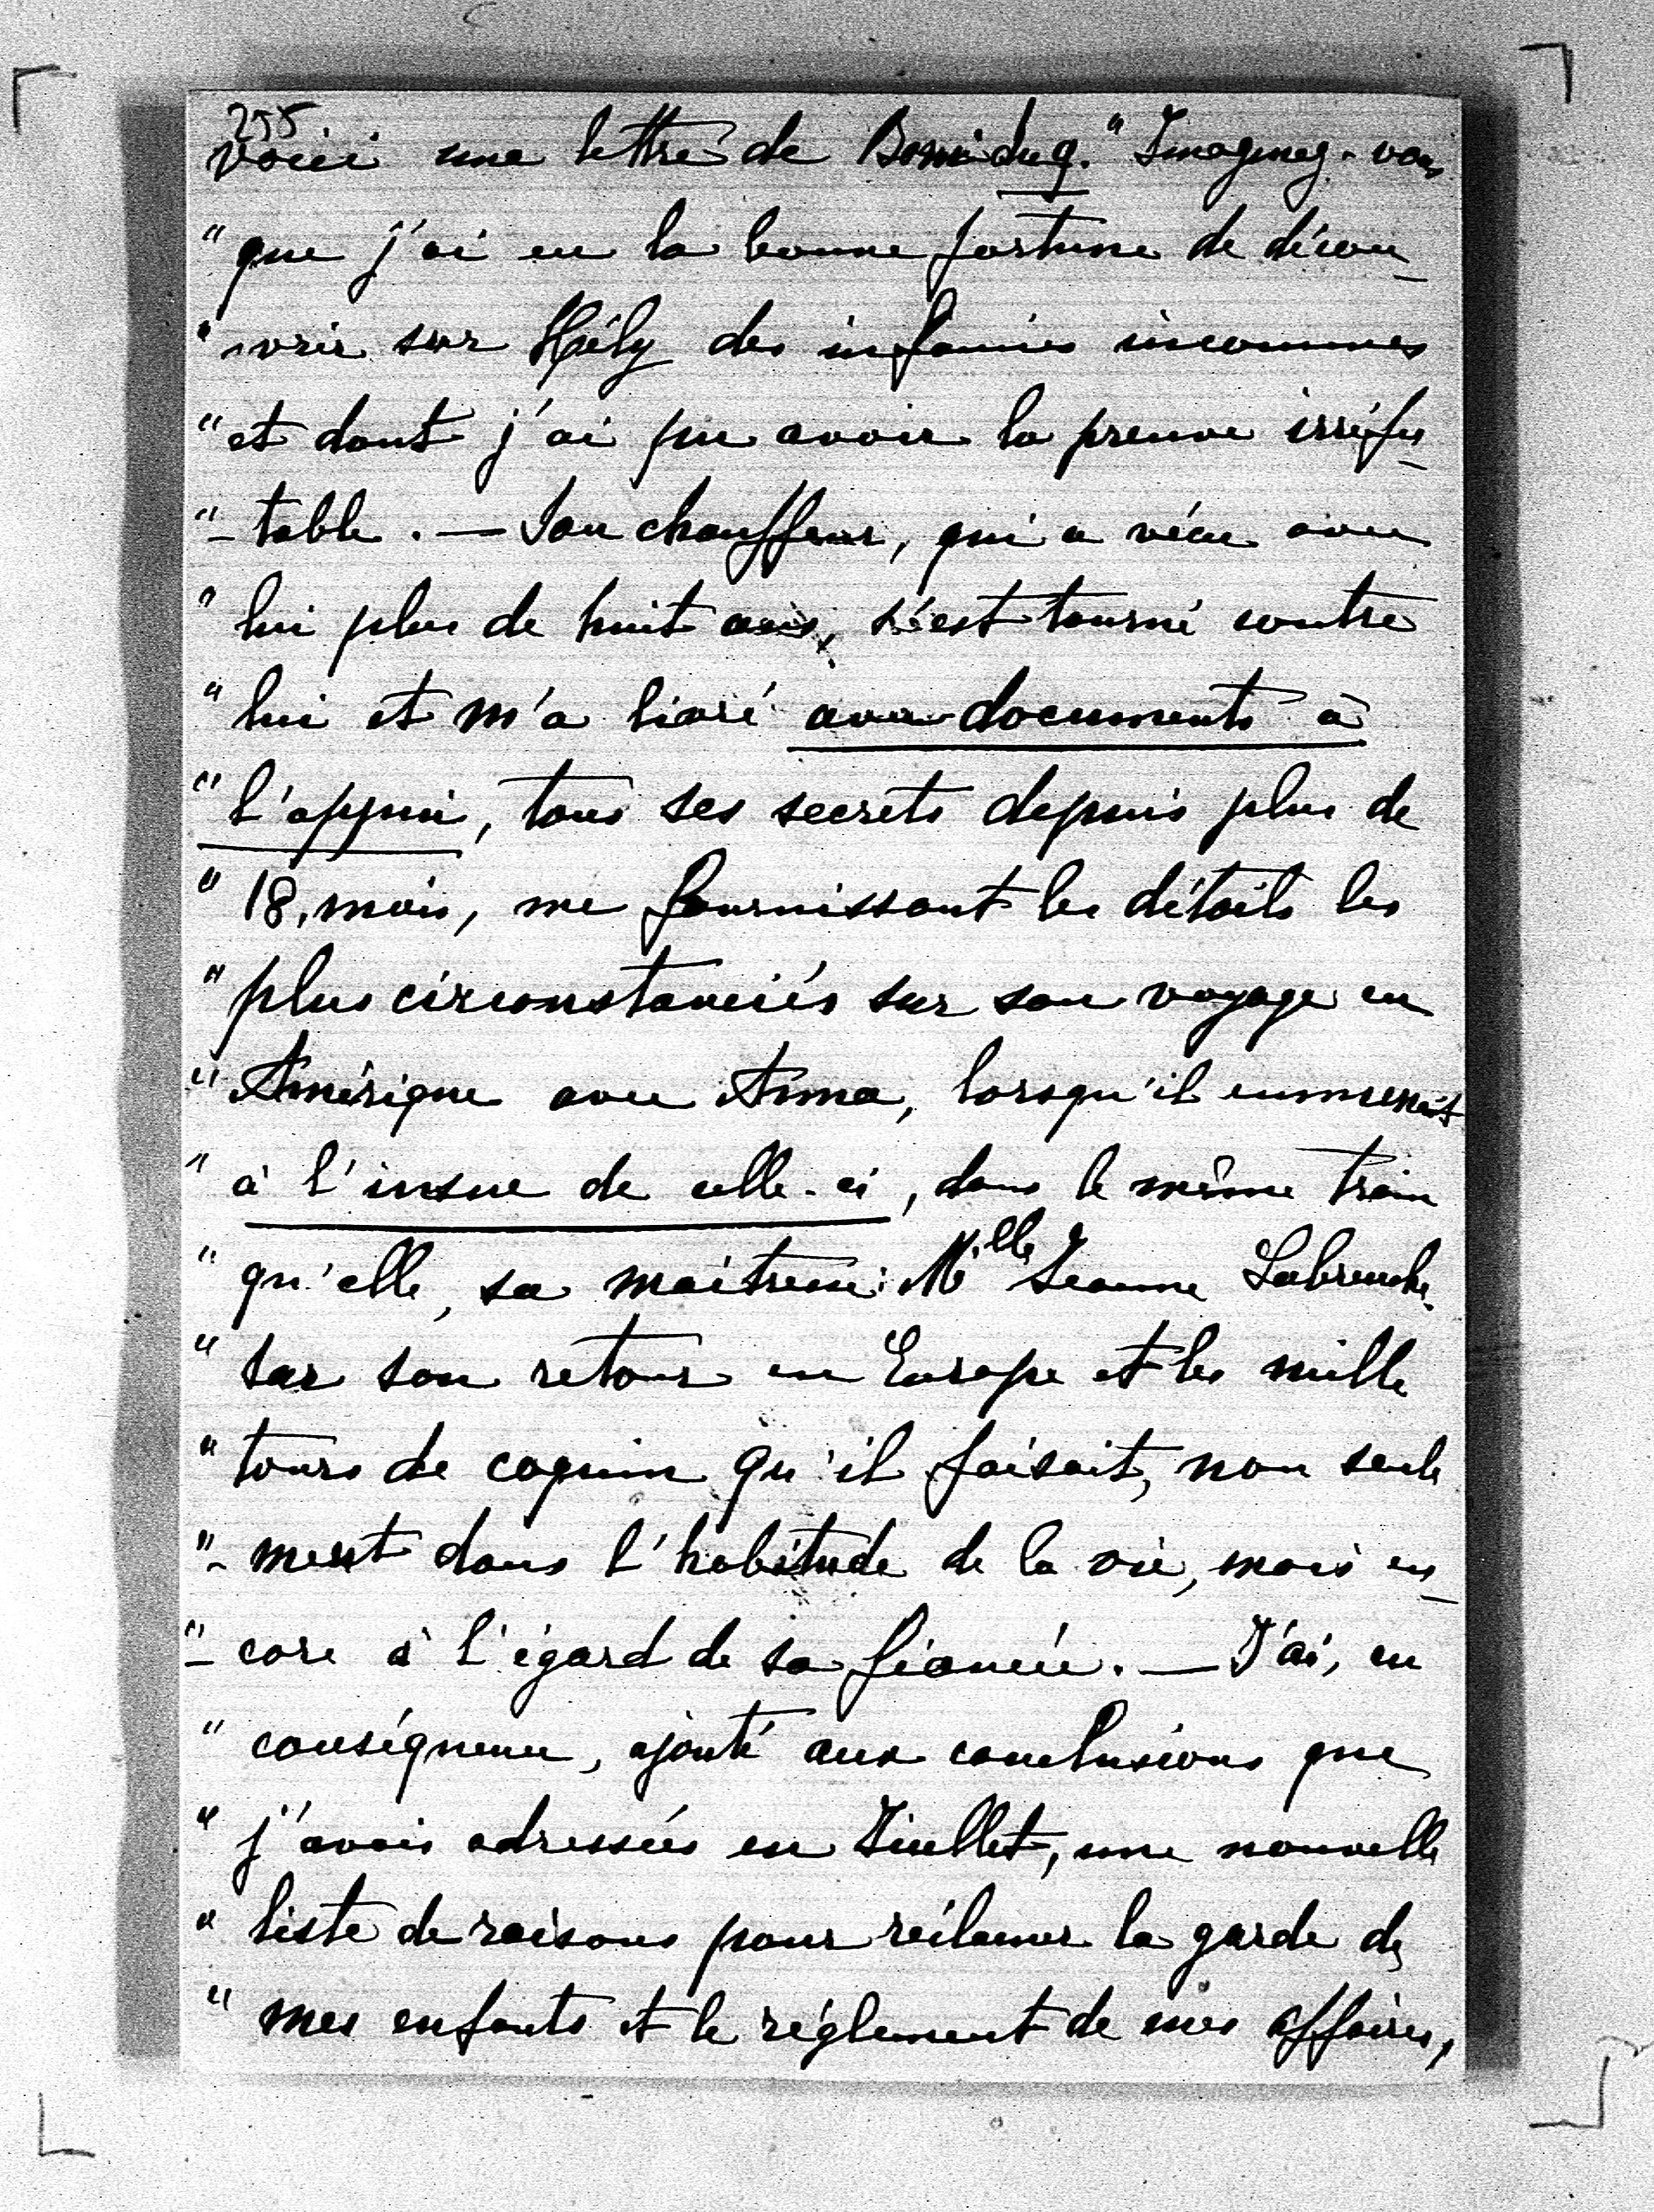 255
voici une lettre de Bonidug. " Imaginez-vous
" que j'ai eu la bonne fortune de décou_
" -vrir sur Hély des infamies inconnues
" et dont j'ai pu avoir la preuve irréfu_
" -table. — Son chauffeur, qui a vécu avec
" lui plus de huit ans, s'est tourné contre
" lui et m'a livré avec documents à
" l'appui, tous ses secrets depuis plus de
" 18, mois, me fournissant les détails les
" plus circonstanciés sur son voyage en
" Amérique avec Anna, lorsqu'il emmenait
" à l'insue de celle-ci, dans le même train
" qu'elle, sa maitresse: Mlle Jeanne
" sur son retour en Europe et les mille
" tours de coquin qu'il faisait, non seule
" -ment dans l'habitude de la vie, mais en_
" -core à l'égard de sa fiancée. — J'ai, en
" conséquence, ajouté aux conclusions que
" j'avais adressées en Juillet, une nouvelle
" liste de raisons pour réclamer la garde de
" mes enfants et le réglement de mes affaires,